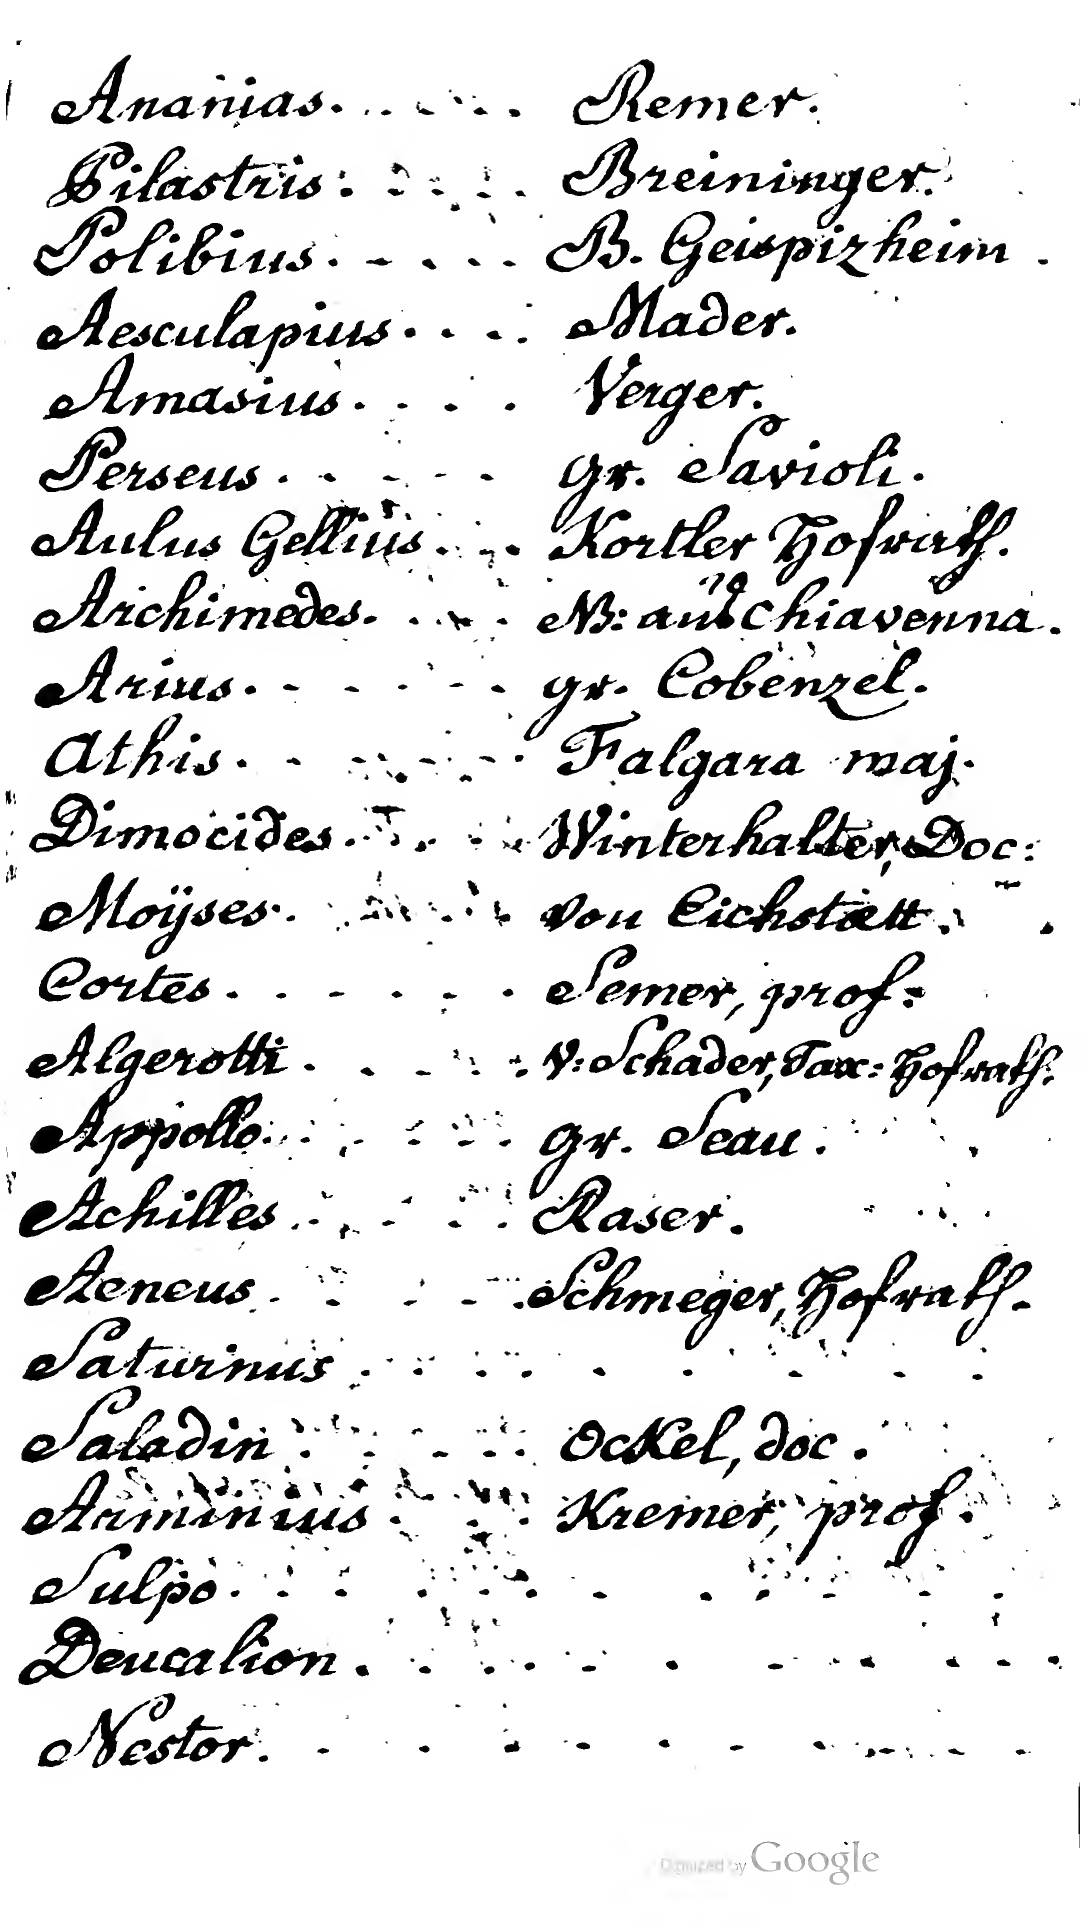 Ananias. . . . . . Remer.
Pilastris: . . . . Breininger.
Polibius. . . . . . B. Geispizheim .
Aesculapius. . . . . Mader.
Amasius. . . . . Verger.
Perseus . . . . . . gr. Savioli.
Aulus Gellius. . . . Kortler Hofrath.
Archimedes. . . . . NB: aus Chiavenna.
Arius. . . . . . . gr. Cobenzel.
Athis . . . . . . . Falgara maj.
Dimocides. . . . . Winterhalter, Doc:
Moÿses. . . . . . von Eichstætt.
Cortes . . . . . . . Semer, prof:
Algerotti . . . . . . v: Schader, Tax: Hofrath.
Appollo. . . . . . gr. Seau.
Achilles . . . . . . Raser.
Aeneus . . . . . . Schmeger, Hofrath.
Saturnus . . . . . . . . . .
Saladin . . . . . . Ockel, doc.
Arminius . . . . Kremer, prof.
Sulpo. . . . . . . . . . .
Deucalion . . . . . . . . . .
Nestor. . . . . . . . . . .
Digitized by Google